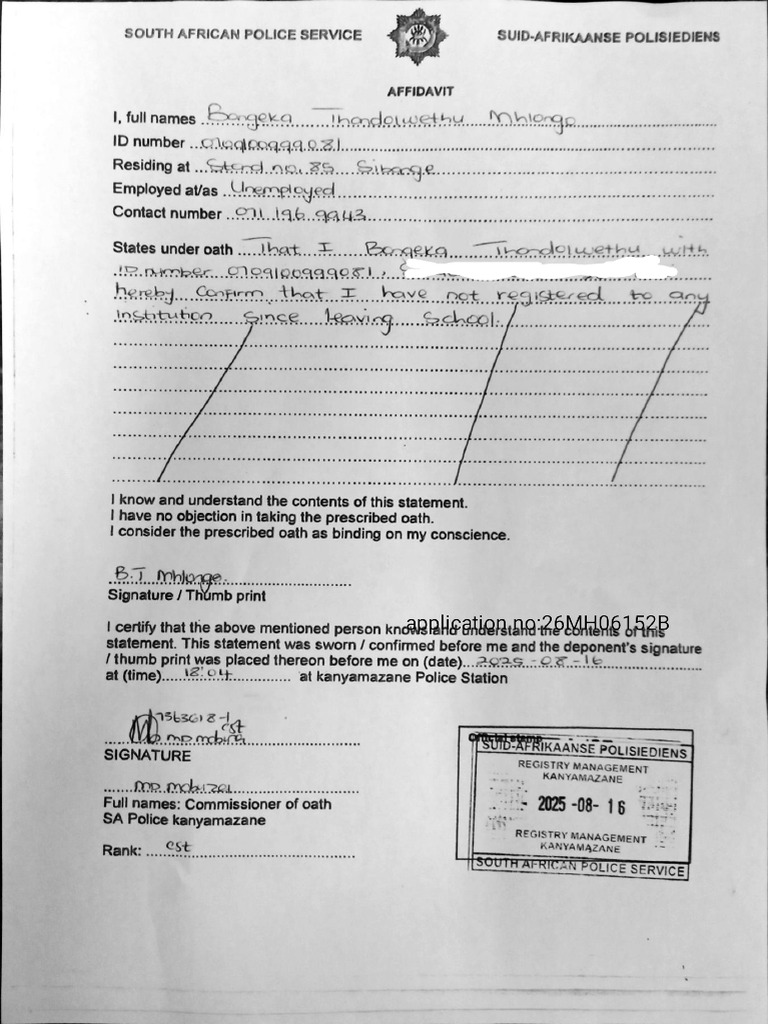 SOUTH AFRICAN POLICE SERVICE
SUID-AFRIKAANSE POLISIEDIENS
AFFIDAVIT
I, full names Bongeka Thandolwethu Mhlongo
ID number 0709100999081
Residing at Stand no. 85 Sibange
Employed at/as Unemployed
Contact number 071 196 9943
States under oath That I Bongeka Thandolwethu with
ID number 0709100999081,
hereby confirm that I have not registered to any
institution since leaving School.
I know and understand the contents of this statement.
I have no objection in taking the prescribed oath.
I consider the prescribed oath as binding on my conscience.
B.T Mhlongo
Signature / Thumb print
application no:26MH06152B
I certify that the above mentioned person knows and understand the contents of this
statement. This statement was sworn / confirmed before me and the deponent's signature
/ thumb print was placed thereon before me on (date) 2025-08-16
at (time) 18:04 at kanyamazane Police Station
cst
SIGNATURE
Full names: Commissioner of oath
SA Police kanyamazane
Rank: cst
Official stamp
SUID-AFRIKAANSE POLISIEDIENS
REGISTRY MANAGEMENT
KANYAMAZANE
2025 -08- 16
REGISTRY MANAGEMENT
KANYAMAZANE
SOUTH AFRICAN POLICE SERVICE